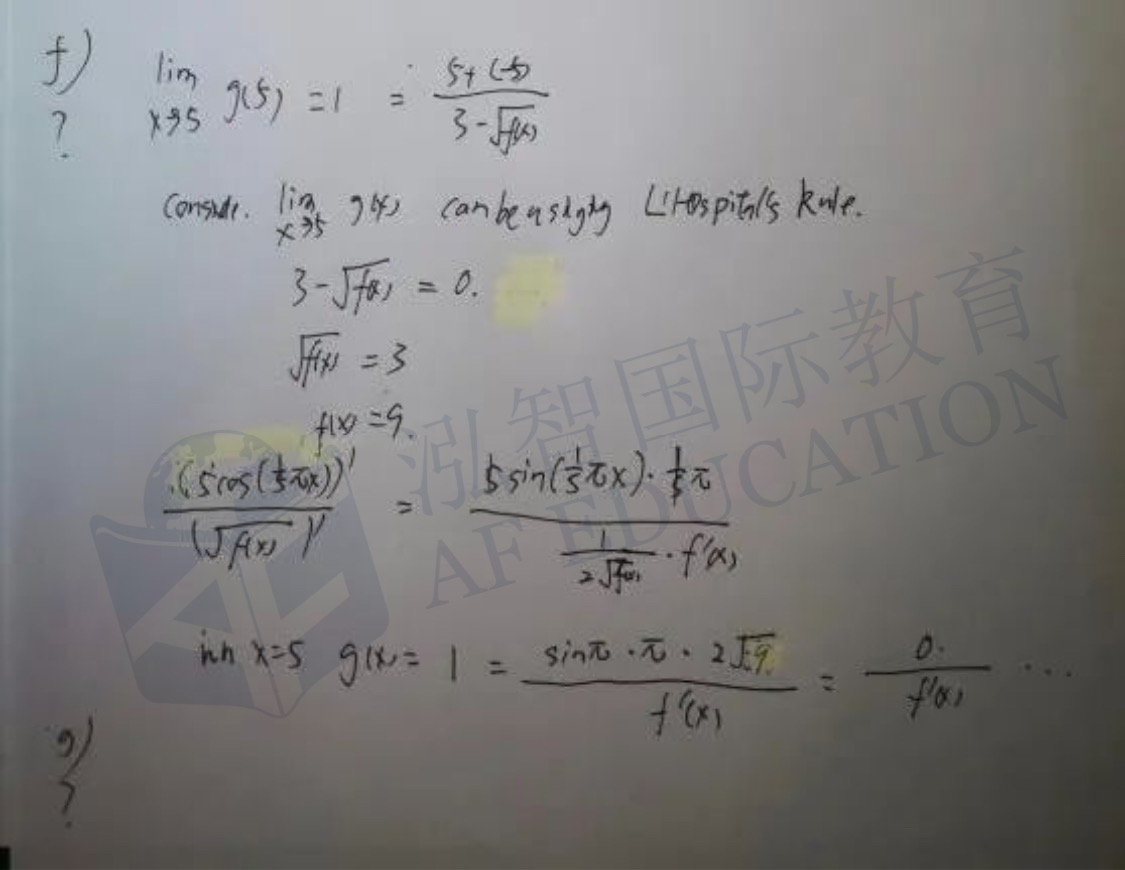 f)
?
lim x→5 g(5) = 1 = (5+(-5))/(3-√f(x))
lim x→5 g(x) can be L'Hospital's Rule.
3-√f(x) = 0.
√f(x) = 3
f(x) = 9.
(5cos(1/5 πx))' / (√f(x))' = 5 sin(1/5 πx) · 1/5 π / (1/(2√f(x)) · f'(x))
x=5 g(x) = 1 = sinπ · π · 2√9 / f'(x) = 0. / f'(x) ...
g)
?
泓智国际教育
AF EDUCATION